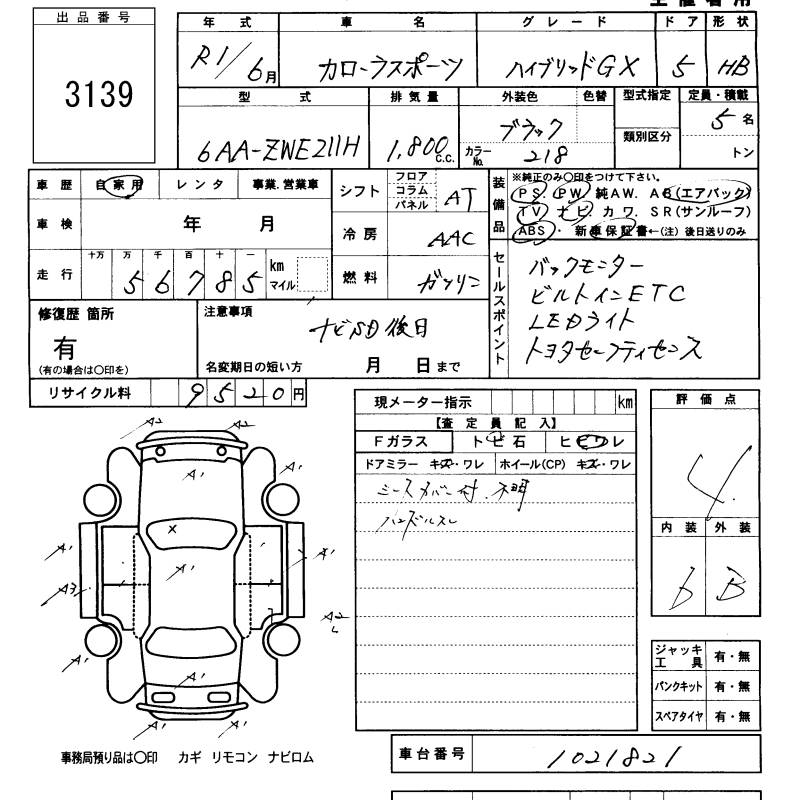 出品番号
3139
年式 車名 グレード ドア 形状
R1/6月 カローラスポーツ ハイブリッドGX 5 HB
型式 排気量 外装色 色替 型式指定 定員・積載
6AA-ZWE211H 1,800 c.c. ブラック カラーNo. 218 類別区分 5名 トン
車歴 自家用 レンタ 事業.営業車
車検 年 月
走行 十万 万 千 百 十 一 km マイル
5 6 7 8 5
シフト フロア コラム パネル AT
冷房 AAC
燃料 ガソリン
装備品
※純正のみ〇印をつけて下さい。
PS PW 純AW. AB(エアバック)
TV ナビ. カワ. SR(サンルーフ)
ABS・新車保証書←(注) 後日送りのみ
セールスポイント
バックモニター
ビルトインETC
LEDライト
トヨタセーフティセンス
修復歴 箇所
有
(有の場合は〇印を)
注意事項
ナビSD後日
名変期日の短い方 月 日まで
リサイクル料 9520円
現メーター指示 km
【査定員記入】
Fガラス トビ石 ヒビワレ
ドアミラー キズ・ワレ ホイール(CP) キズ・ワレ
シースカバー付. 不明
ハンドルスレ
評価点
4
内装 外装
6 B
A2 A2
A1 A1
A1
X
A1 A1
A1
A3
A2
A1 A1 A1
A2 A2
ジャッキ工具 有・無
パンクキット 有・無
スペアタイヤ 有・無
事務局預り品は〇印 カギ リモコン ナビロム
車台番号 1021821